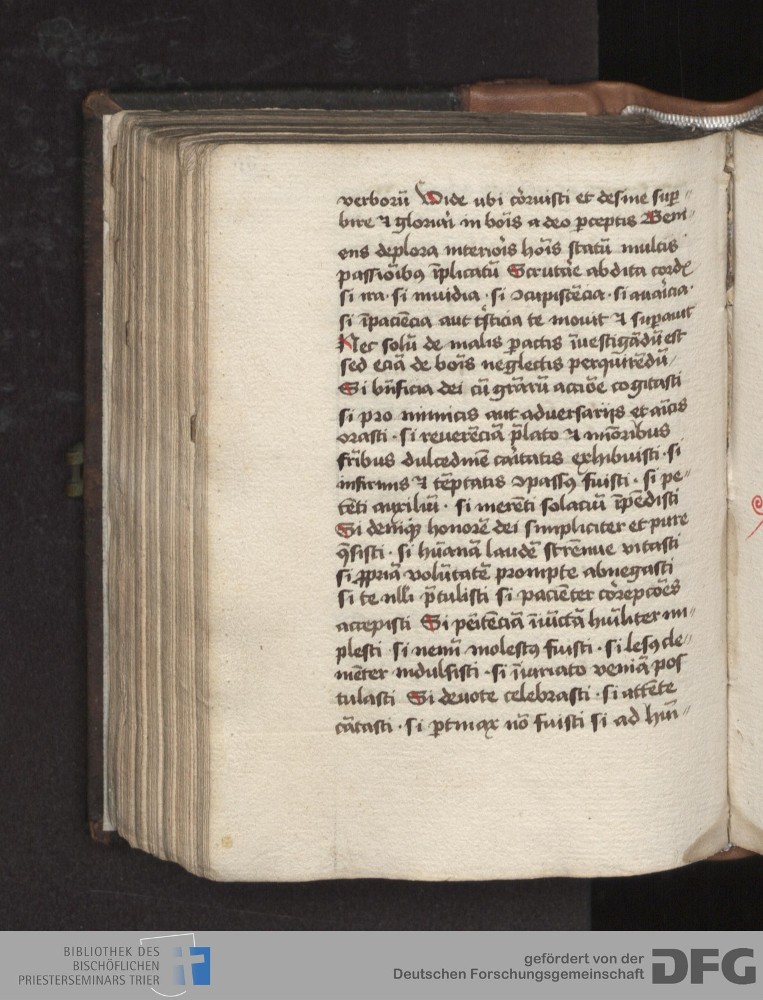 verborū Vide ubi cōruisti et desine sup̱
bire ⁊ gloriari in bōis a deo p̱ceptis Veni
ens deplora interiōis hōis statū multis
passiōibꝰ īplicatū Scrutare abdita cordꝭ
si ira · si invidia · si ꝯcupiscēcia · si avaricia ·
si īpaciēcia aut tsticia te movit ⁊ sup̱avit
Nec solū de malis p̱actis īvestigādū est
sed eciā de bōis neglectis perquirēdū
Si bn̄ficia dei cū gr̄arū acciōe cogitasti
si pro inimicis aut adversariis et aīcis
orasti · si reverēciā p̄lato ⁊ mīoribus
fr̄ibus dulcedinē caritatis exhibuisti · si
infirmis ⁊ tēptatis ꝯpassꝰ fuisti · si pe
tēti auxiliū · si merēti solaciū īpēdisti
Si deniqꝫ honorē dei simpliciter et pure
q̄sisti · si hūanā laudē strēnue vitasti
si ꝓpriā volūtatē prompte abnegasti
si te nlli p̄tulisti si paciēter cōrepcōes
accepisti Si pēitēciā īiūctā hūiliter im
plesti · si nemī molestꝰ fuisti · si lesꝰ cle
mēter indulsisti · si īuriato veniā pos
tulasti Si devote celebrasti · si attēte
cātasti · si p̱tinax nō fuisti si ad hūi
BIBLIOTHEK DES
BISCHÖFLICHEN
PRIESTERSEMINARS TRIER
gefördert von der
Deutschen Forschungsgemeinschaft
DFG